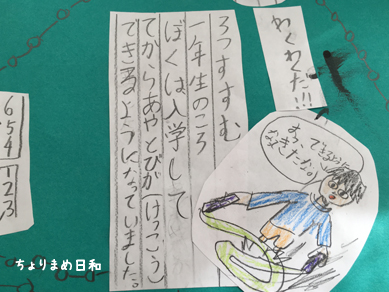 わくわくだ!!!
ろっすすむ
一年生のころ
ぼくは入学して
てからあやとびが(けっこう)
できるようになっていました。
もう、できるように
なってきたな。
654
123
ちょりまめ日和